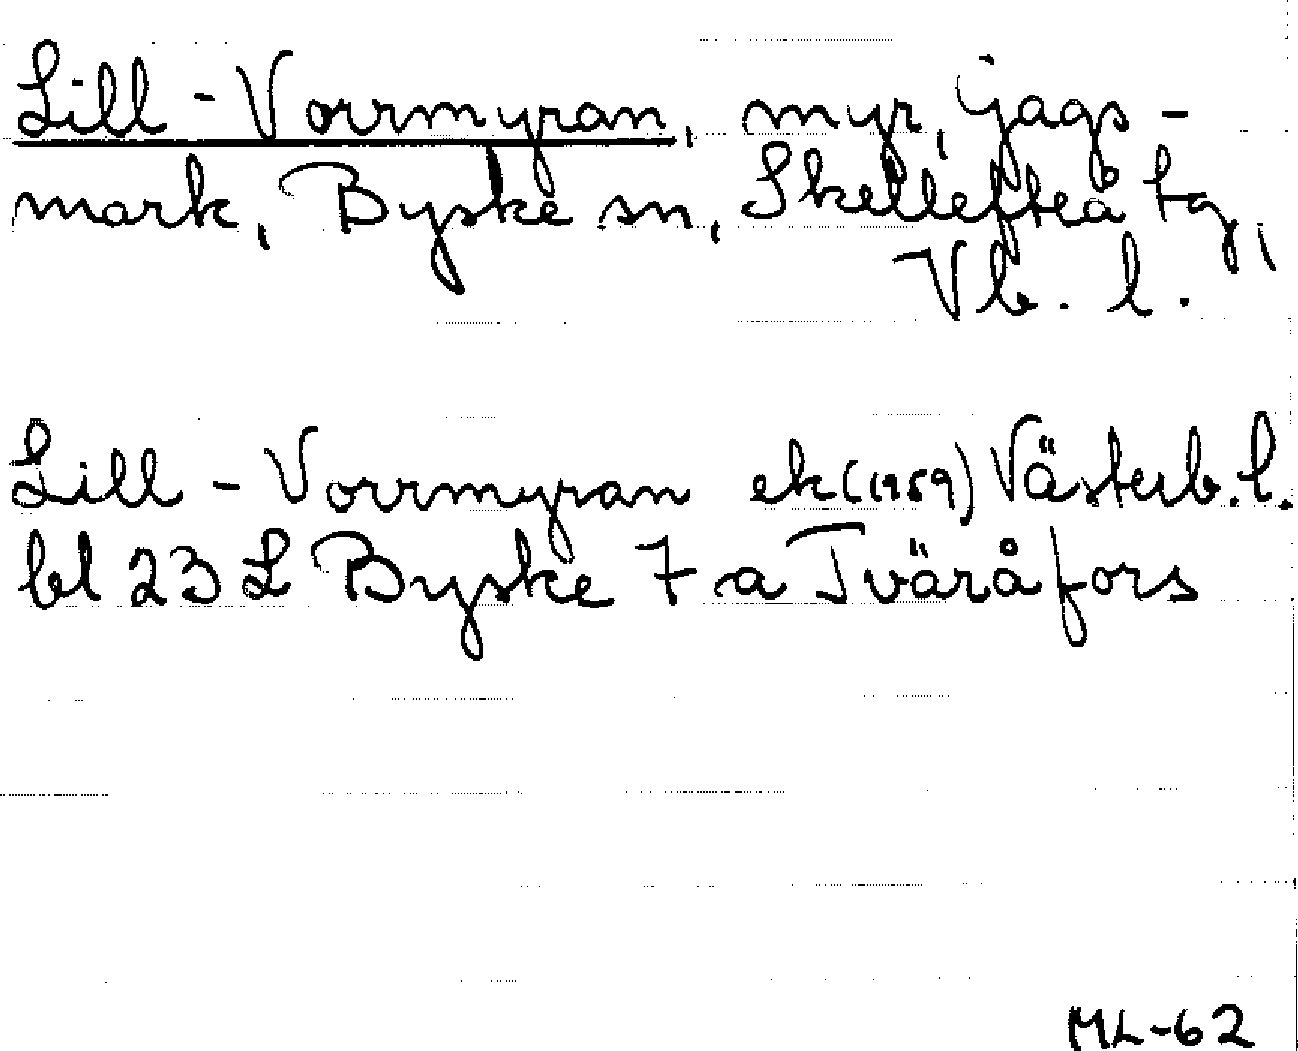 Lill-Vorrmyran, myr, Gags-
mark, Byske sn, Skellefteå tg,
Vb. l.
Lill-Vorrmyran ek (1959) Västerb. l.
bl 23 L Byske 7 a Tväråfors
ML-62